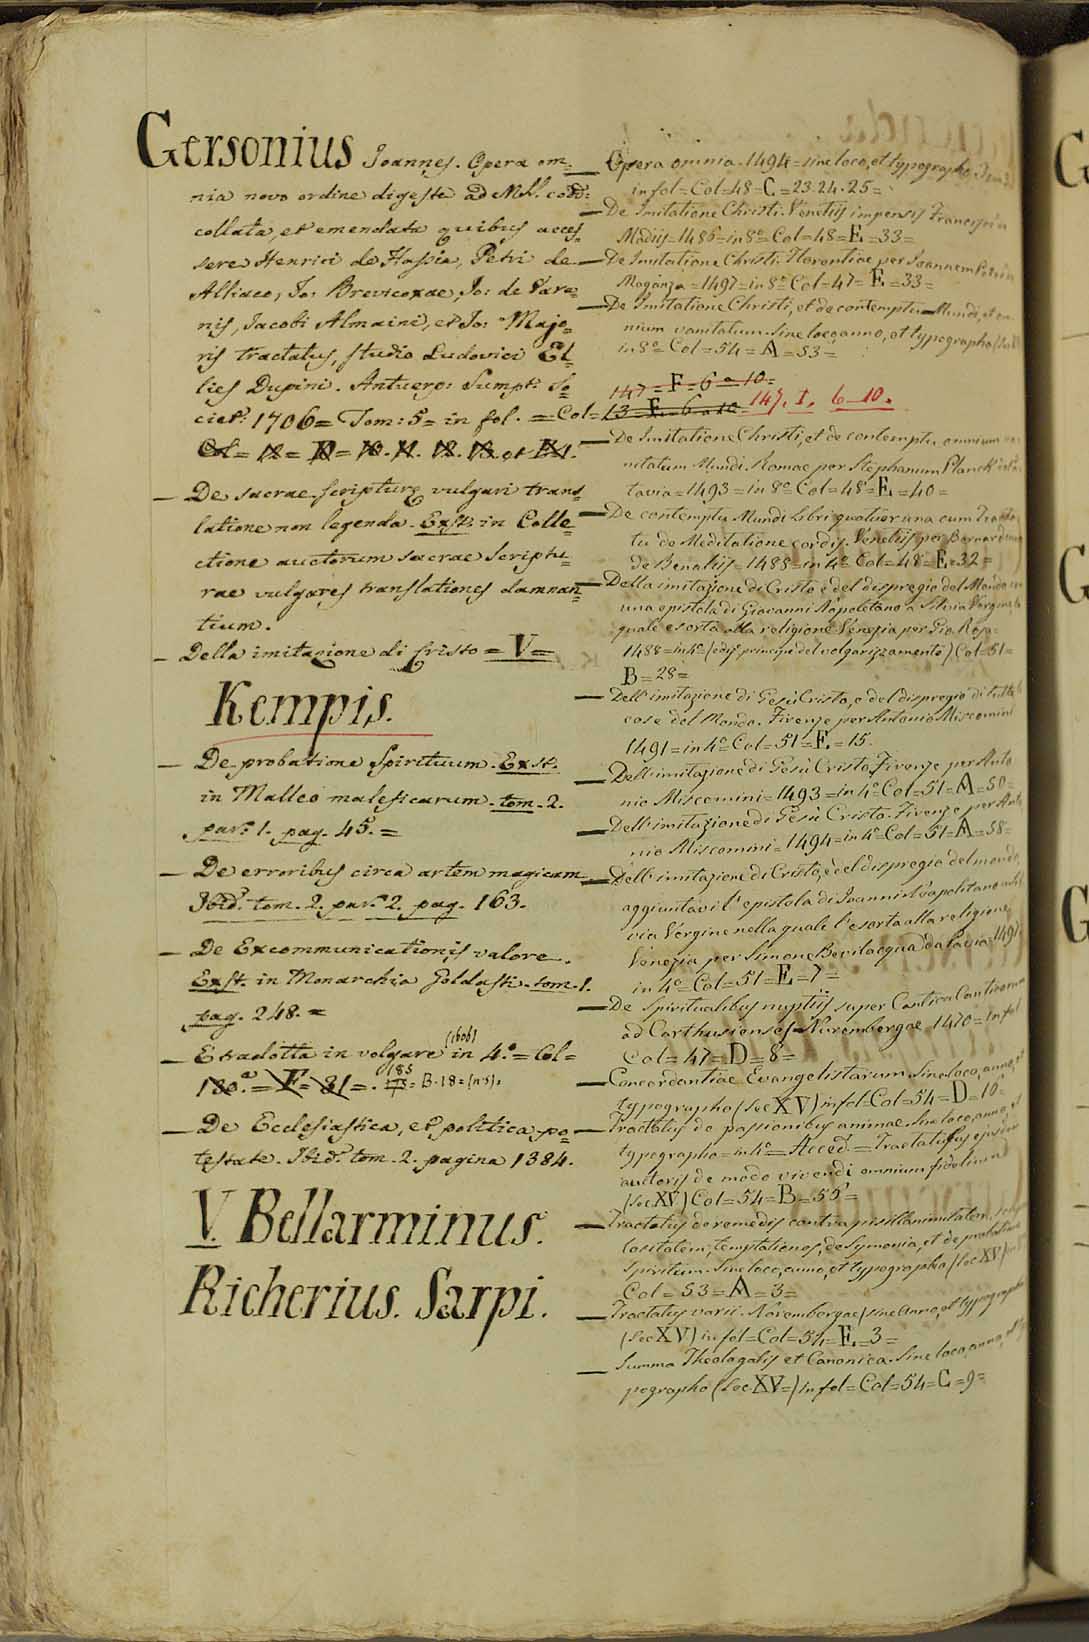 Gersonius Joannes. Opera om=
nia novo ordine digesta ad Mss. codd:
collata, et emendata quibus acces=
sere Henrici de Hassia, Petri de
Alliaco, Jo: Brevicoxae, Jo: de Vara=
nis, Jacobi Almaini, et Jo: Majo=
ris tractatus, studio Ludovici El=
lies Dupini. Antuerp: Sumpt: So=
ciet: 1706 = Tom: 5 = in fol. = Col =
— De sacrae scripturę vulgari trans=
latione non legenda. Exst. in Colle=
ctione auctorum sacrae Scriptu=
rae vulgares translationes damnan=
tium.
— Della imitazione di Cristo = V =
Kempis.
— De probatione Spirituum. Exst.
in Malleo maleficarum. tom. 2.
par. 1. pag. 45. =
— De erroribus circa artem magicam
Ibid. tom. 2. par. 2. pag. 163.
— De Excommunicationis valore.
Exst. in Monarchia Goldasti. tom. 1.
pag. 248. =
— E tradotta in volgare (1606) in 4.° = Col =
180. = F = 81 = . 185 = B. 18 = (n. 5) =
— De Ecclesiastica, et politica po=
testate. Ibid. tom. 2. pagina 1384.
V. Bellarminus.
Richerius. Sarpi.
— Opera omnia. 1494 = sine loco, et typographo
in fol = Col = 48 = C = 23. 24. 25 =
— De Imitatione Christi. Venetiis impensis Francisci
Madiis = 1486 = in 8° = Col = 48 = E = 33 =
— De Imitatione Christi. Florentiae per Joannem Petri
Maganza = 1497 = in 8° = Col = 47 = E = 33 =
— De Imitatione Christi, et de contemptu Mundi, et
nium vanitatum. Sine loco, anno, et typographo
in 8° = Col = 54 = A = 53 =
147 = F = 6 a 10 =
13 = E = 6 a 10 = 147. I. 6 - 10.
— De Imitatione Christi, et de contemptu omnium
nitatum Mundi. Romae per Stephanum Planck
tavia = 1493 = in 8° Col = 48 = E = 40 =
— De contemptu Mundi Libri quatuor una cum
tu de Meditatione cordis. Venetiis per Bernardinum
de Benaliis = 1488 = in 4° = Col = 48 = E = 32 =
— Della imitazione di Cristo e del dispregio del Mondo
una epistola di Giovanni Napoletano a Silvia Vergine
quale esorta alla religione Venezia per Gio: Rosso
1488 = in 4° = (ediz. principe del volgarizzamento) Col = 51 =
B = 28 =
— Dell' imitazione di Gesù Cristo, e del dispregio di tutte
cose del Mondo. Firenze per Antonio Miscomini
1491 = in 4° = Col = 51 = E = 15.
— Dell' imitazione di Gesù Cristo. Firenze per Anto
nio Miscomini = 1493 = in 4° = Col = 51 = A = 50 =
— Dell' imitazione di Gesù Cristo. Firenze per Anto
nio Miscomini = 1494 = in 4° = Col = 51 = A = 58 =
— Dell' imitazione di Cristo, e del dispregio del mondo,
aggiuntavi l' epistola di Joanni Napolitano
via Vergine nella quale l' esorta alla religione
Venezia per Simone Bevilacqua da Pavia
in 4° = Col = 51 = E = 7 =
— De Spiritualibus nuptiis super Cantica Canticorum
ad Carthusienses. Nurembergae 1470 = in fol
Col = 47 = D = 8 =
— Concordantiae Evangelistarum. Sine loco, anno,
typographo (sec XV) in fol = Col = 54 = D = 10 =
— Tractatus de passionibus animae. Sine loco, anno,
typographo = in 4° = Acced. = Tractatus ejusdem
auctoris de modo vivendi omnium fidelium
(sec. XV) Col = 54 = B = 55 =
— Tractatus de remediis contra pusillanimitatem,
lositatem, temptationes, de Symonia, et de probatione
Spirituum. Sine loco, anno, et typographo (sec XV)
Col = 53 = A = 3 =
— Tractatus varii. Norembergae (sine anno, et typographo
(sec XV) in fol = Col = 54 = E = 3 =
— Summa Theologalis et Canonica. Sine loco, anno,
pographo (sec XV =) in fol = Col = 54 = C = 9 =